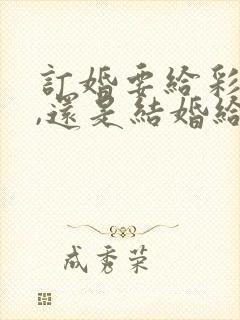 訂婚要給彩
,還是結婚給
成秀荣